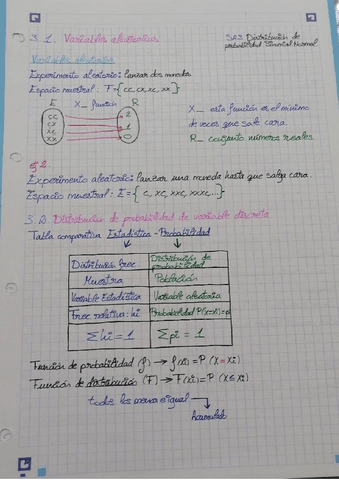 3.1. Variables aleatorias
3A3 Distribución de
probabilidad Binomial Normal
Variables aleatorias
Experimento aleatorio: lanzar dos monedas
Espacio muestral: F={cc, cx, xc, xx}
E X_ función R
X_ esta función es el mínimo
de veces que sale cara.
R_ conjunto números reales.
cc
cx
xc
xx
2
1
0
Ej 2.
Experimento aleatorio: lanzar una moneda hasta que salga cara.
Espacio muestral: E={c, xc, xxc, xxxc...}
3.2. Distribución de probabilidad de variable discreta
Tabla comparativa Estadística - Probabilidad
Distribución frec Distribución de probabilidad
Muestra Población
Variable Estadística Variable aleatoria
Frec relativa: hi Probabilidad P(x=xi)=pi
Σhi = 1 Σpi = 1
Función de probabilidad (f) → f(xi)=P(x=xi)
Función de distribución (F) → F(xi)=P(x≤xi)
todos los menores e igual